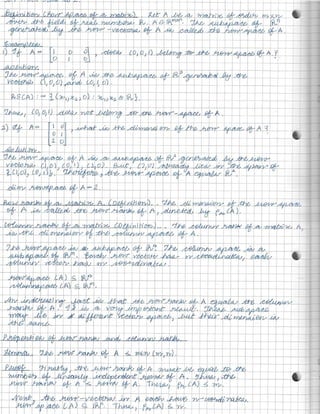 Definition (Row space of a matrix). Let A be a matrix of order m×n
over the field of real numbers R. A ∈ R^m×n. The subspace of R^n
generated by the row-vectors of A is called the row-space of A.
Examples:
1) If A = [1 0 0; 0 1 0], does (0,0,1) belong to the row-space of A?
Solution:
The row-space of A is the subspace of R³ generated by the
vectors (1,0,0) and (0,1,0).
RS(A) := { (x₁, x₂, 0) : x₁, x₂ ∈ R }.
Thus, (0,0,1) does not belong to the row-space of A.
2) If A = [1 0; 0 1; 2 0], what is the dimension of the row space of A?
Solution.
The row space of A is a subspace of R² generated by the row
vectors (1,0), (0,1), (2,0). But, (2,0) already lies in the span of
{(1,0), (0,1)}. Therefore, the row space of A equals R².
dim rowspace of A = 2.
Row rank of a matrix A (Definition). The dimension of the row space
of A is called the row rank of A, denoted by
Column rank of a matrix (Definition). The column rank of a matrix A,
is the dimension of the column space of A.
The row space is a subspace of R^n. The column space is a
subspace of R^m. Each row vector has n coordinates, each
column vector has m coordinates.
rowspace (A) ⊆ R^n
columnspace (A) ⊆ R^m
An interesting fact is that the row rank of A equals the column
rank of A. It is a very important result. These subspaces
may lie in different vector spaces, but their dimension is
the same.
Properties of row rank and column rank.
Lemma. The row rank of A ≤ min (m, n).
Proof. Firstly, the row rank of A must be equal to the
number of linearly independent rows of A. Thus, the
row rank of A ≤ rows of A. Thus, ≤ m.
Next, the row-vectors in A each have n-coordinates,
row space (A) ⊆ R^n. Thus, ≤ n.